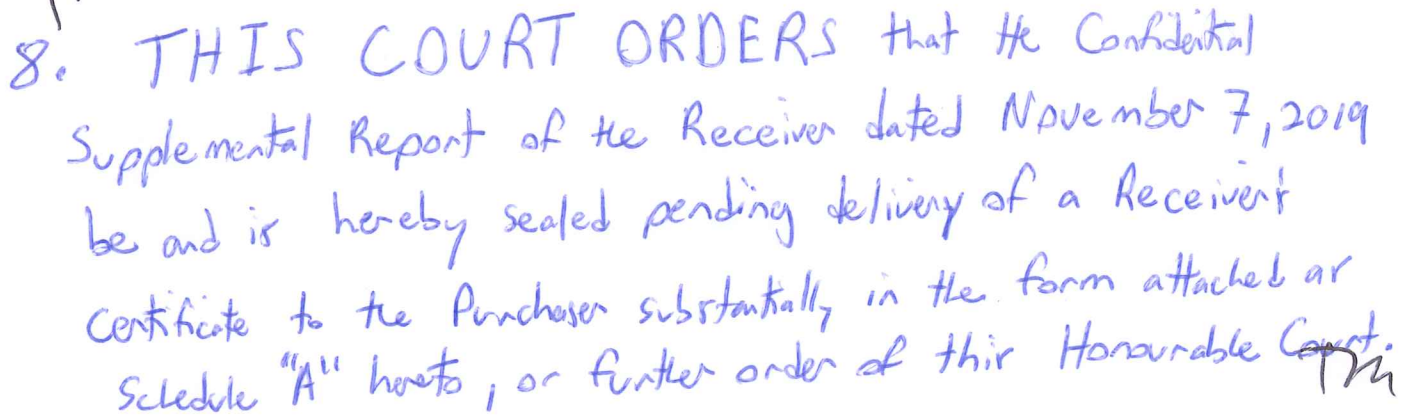 8. THIS COURT ORDERS that the Confidential
Supplemental Report of the Receiver dated November 7, 2019
be and is hereby sealed pending delivery of a Receiver's
certificate to the Purchaser substantially in the form attached as
Schedule "A" hereto, or further order of this Honourable Court.